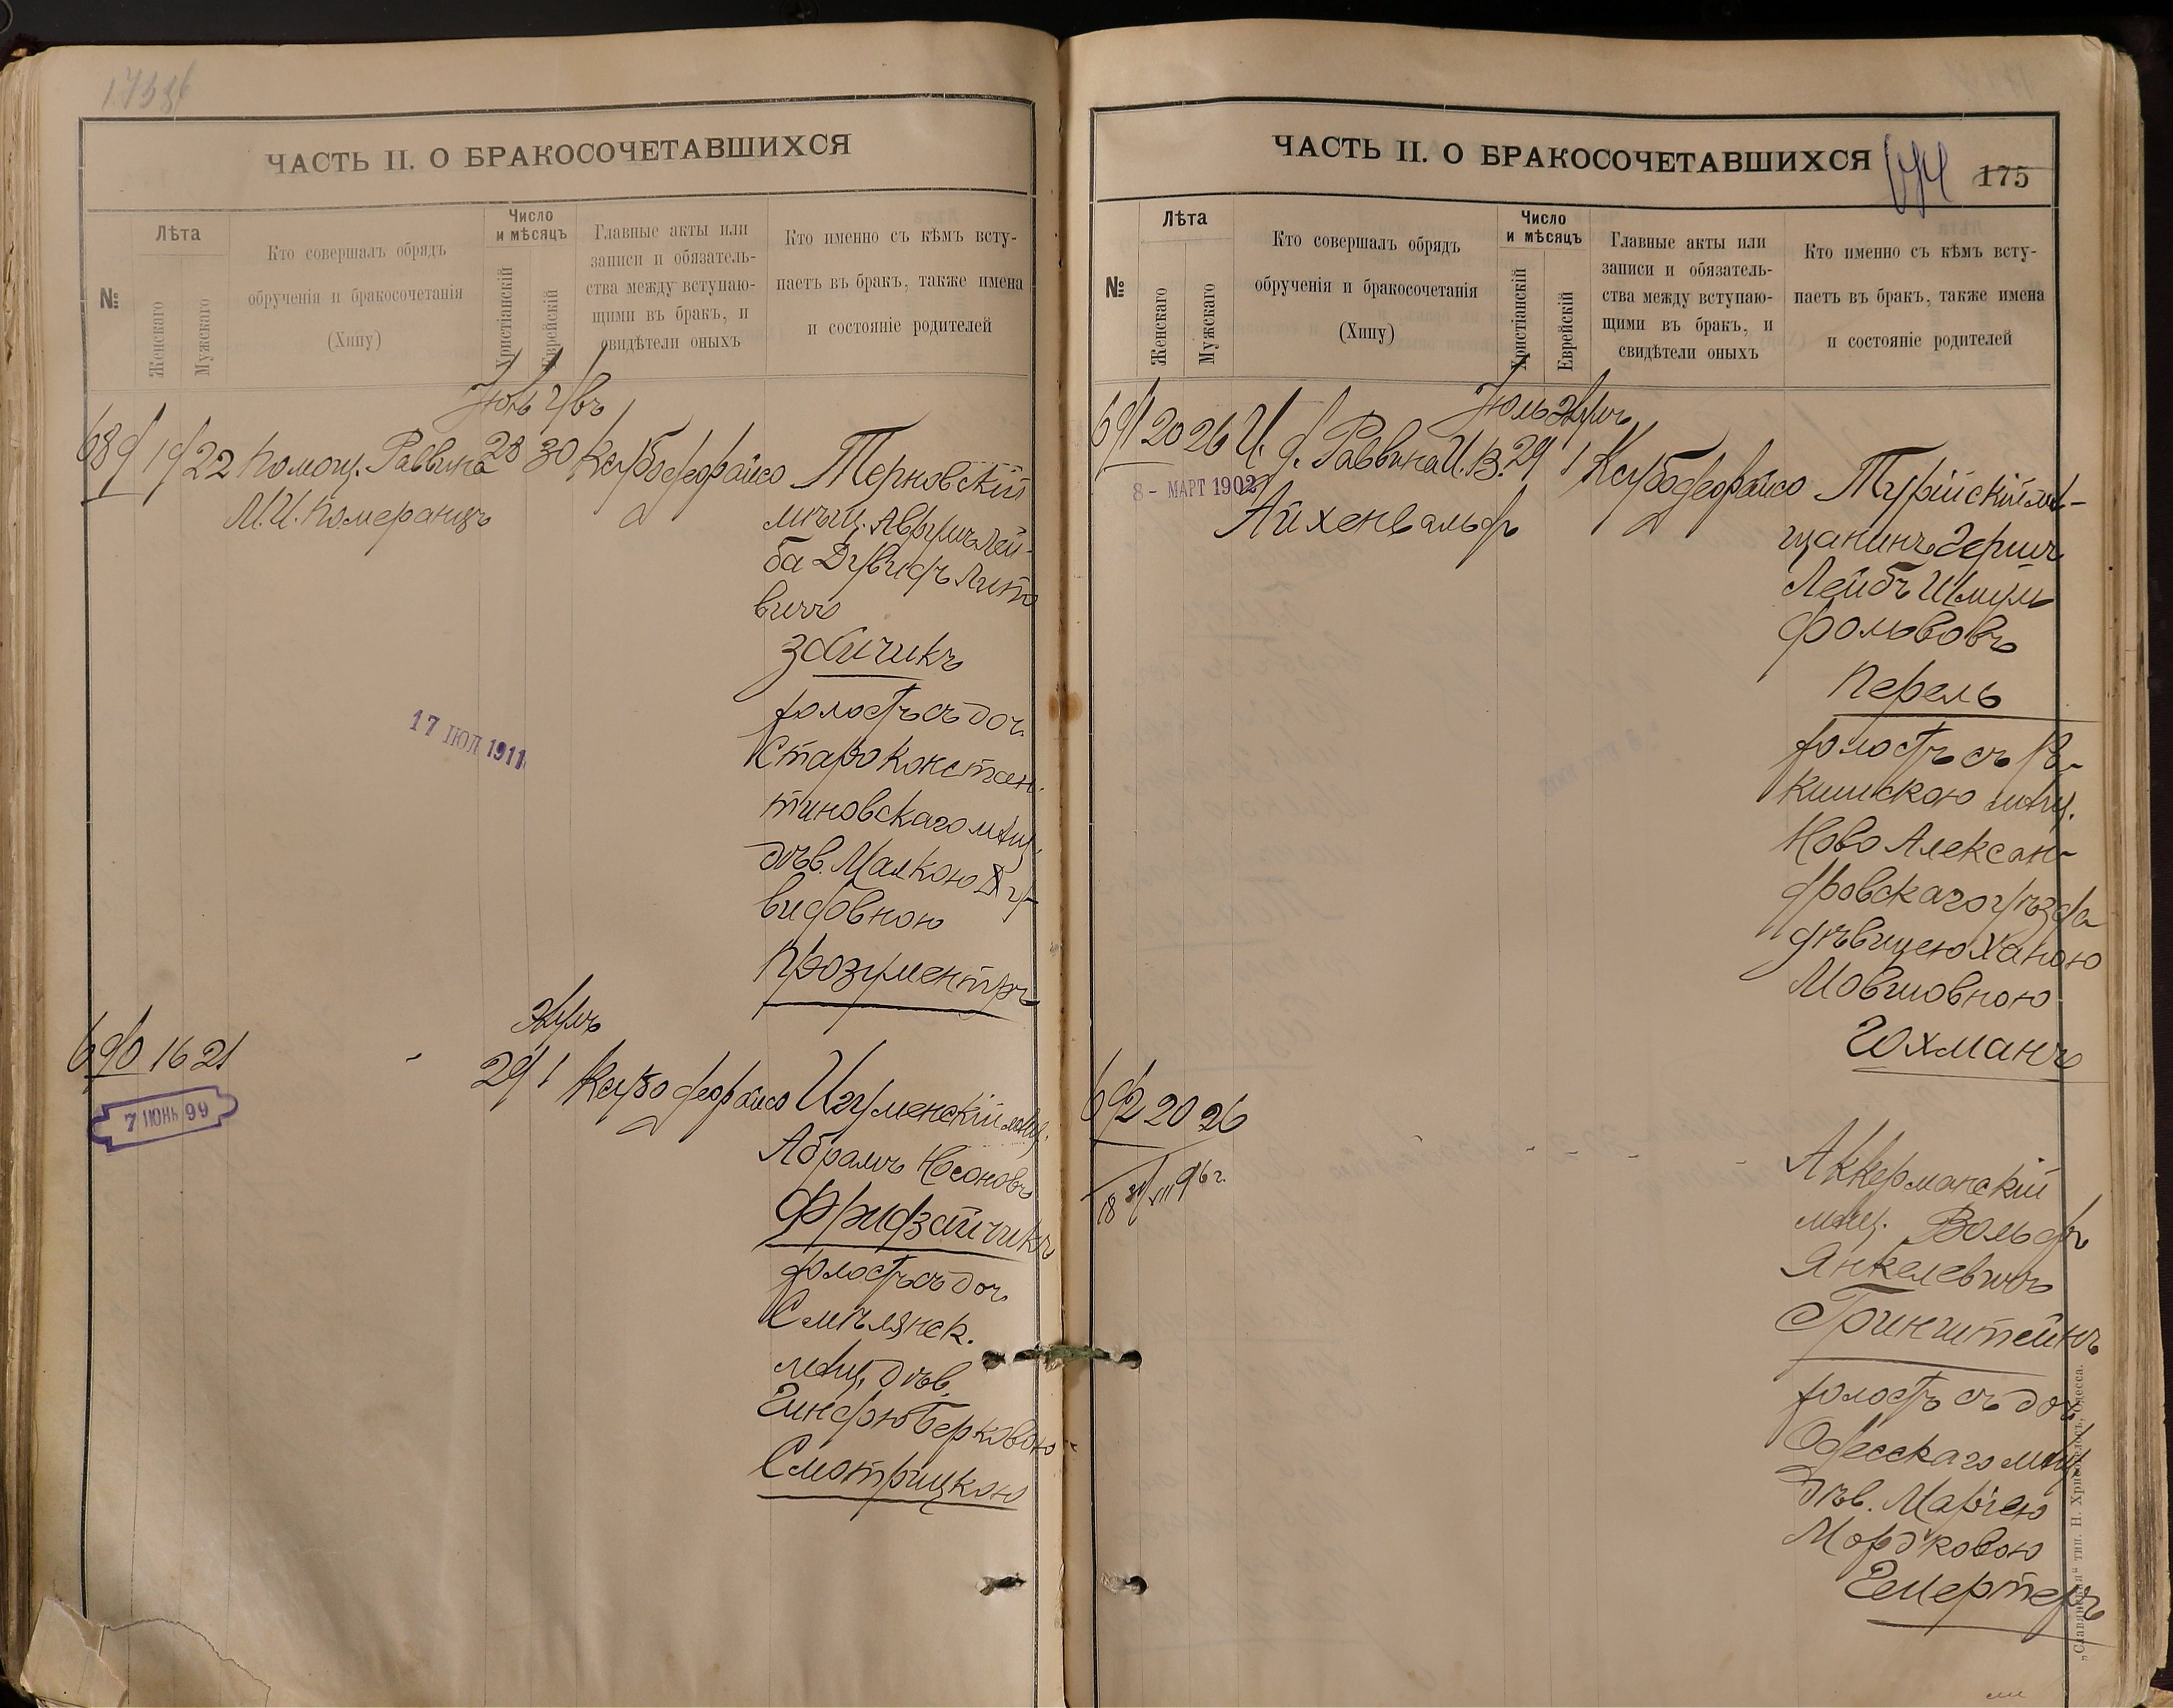 ЧАСТЬ II. О БРАКОСОЧЕТАВШИХСЯ
№
Лѣта
Женскаго
Мужскаго
Кто совершалъ обрядъ
обрученія и бракосочетанія
(Хипу)
Число
и мѣсяцъ
Христіанскій
Еврейскій
Главные акты или
записи и обязатель-
ства между вступаю-
щими въ бракъ, и
свидѣтели оныхъ
Кто именно съ кѣмъ всту-
паетъ въ бракъ, также имена
и состояніе родителей
Іюль
689 19 22 Помощ. Раввина 28 30
М. И. Померанцъ
Терновскій
мѣщ. Аврумъ Лей-
ба Дувидъ
Зайчикъ
холостъ съ доч.
Староконстан-
тиновскаго мѣщ.
дѣв. Малкою Ду-
видовною
Прозументъ
17 ІЮЛ 1911
690 16 21 29 1
7 ІЮНЬ 99
Игуменскій мѣщ.
Абрамъ
Фридзайчикъ
холостъ съ доч.
Смѣлянск.
мѣщ. дѣв.
Гиндою Берковою
Смотрицкою
ЧАСТЬ II. О БРАКОСОЧЕТАВШИХСЯ
174 175
№
Лѣта
Женскаго
Мужскаго
Кто совершалъ обрядъ
обрученія и бракосочетанія
(Хипу)
Число
и мѣсяцъ
Христіанскій
Еврейскій
Главные акты или
записи и обязатель-
ства между вступаю-
щими въ бракъ, и
свидѣтели оныхъ
Кто именно съ кѣмъ всту-
паетъ въ бракъ, также имена
и состояніе родителей
Іюль
691 20 26 И. д. Раввина И. В. 29 1
Айхенвальдъ
8 - МАРТ 1902
Турійскій мѣ-
щанинъ Гершъ
Лейбъ Шмуль
Вольвовъ
Перель
холостъ съ Ра-
кишскою мѣщ.
Ново Алексан-
дровскаго уѣзда
дѣвицею Ханою
Мовшовною
Гохманъ
692 20 26
96 г.
Аккерманскій
мѣщ. Вольфъ
Янкелевичъ
Гринштейнъ
холостъ съ доч.
Одесскаго мѣщ.
дѣв. Маріею
Мордковою
„Славянская“ тип. Н. Хрисогелосъ, Одесса.